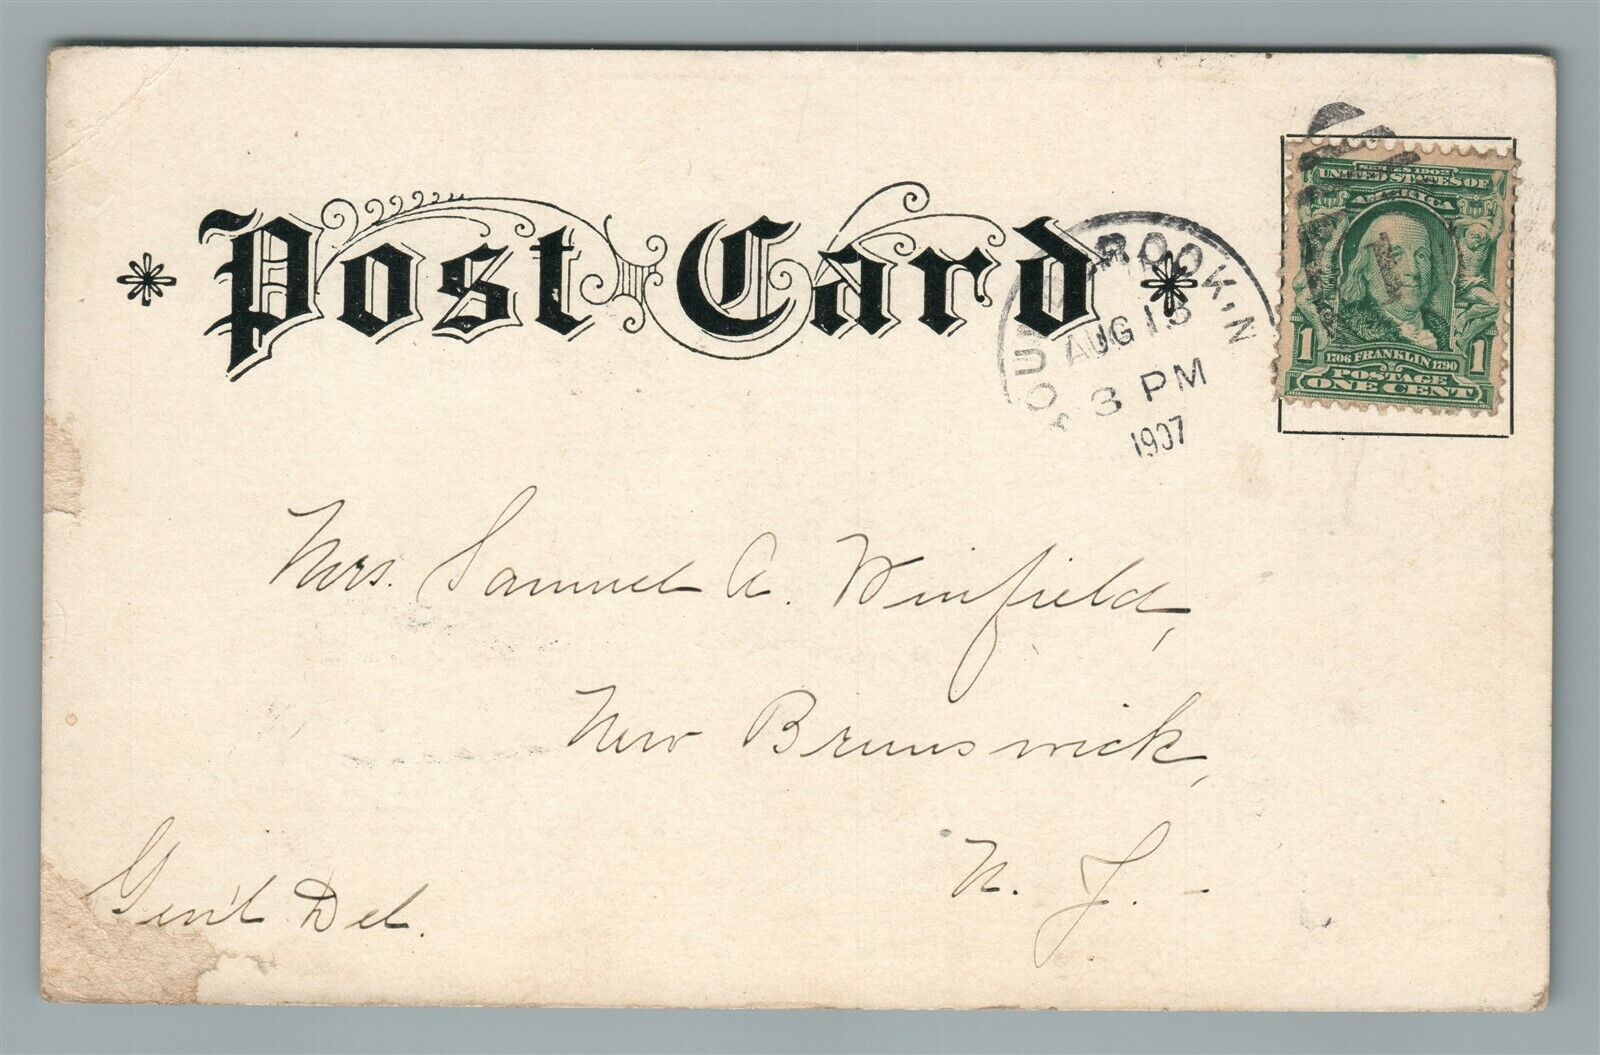 Post Card
SERIES 1902
UNITED STATES OF
AMERICA
1706 FRANKLIN 1790
1 1
POSTAGE
ONE CENT
AUG 13
3 PM
1907
Mrs. Samuel A. Winfield,
New Brunswick,
N. J. -
Gen'l Del.